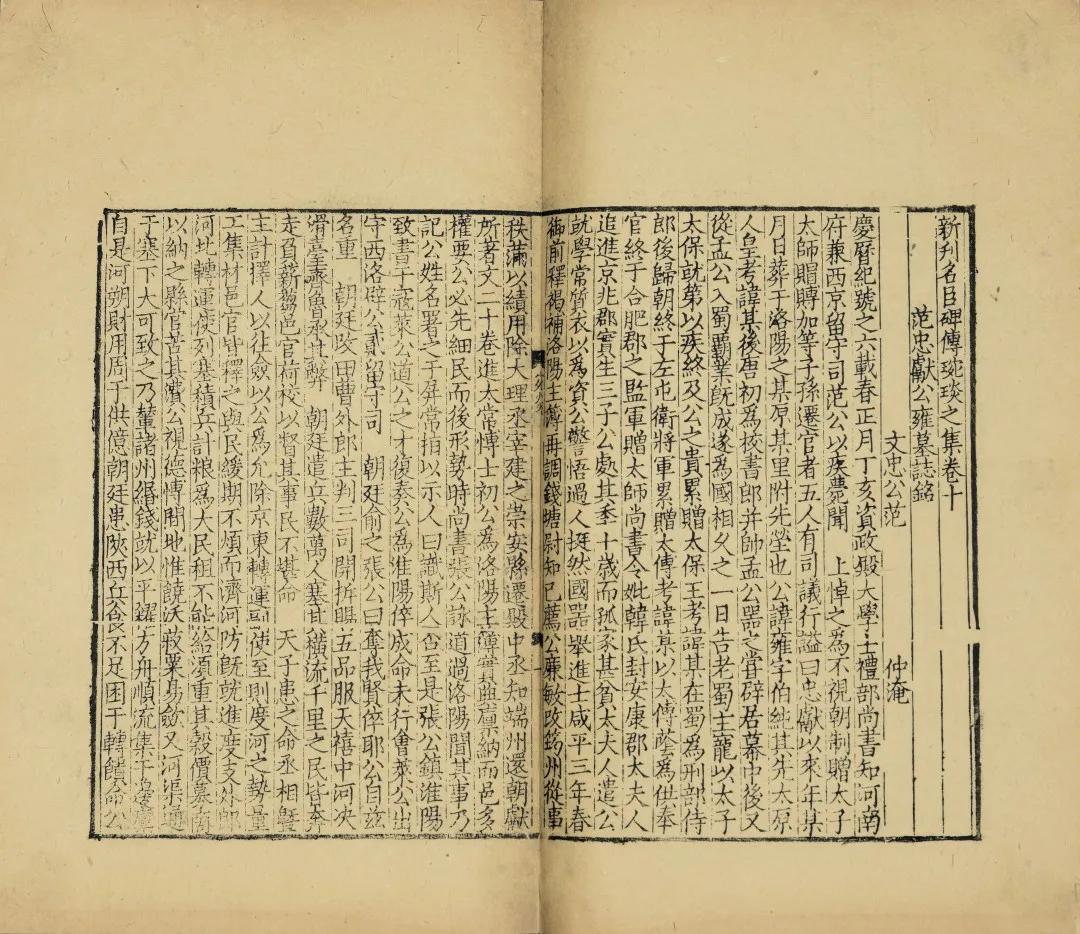 新刊名臣碑傳琬琰之集卷十
范忠獻公雍墓誌銘
文忠公范　仲淹
慶曆紀號之六載春正月丁亥資政殿大學士禮部尚書知河南
府兼西京留守司范公以疾薨聞　上悼之爲不視朝制贈太子
太師賵賻加等子孫遷官者五人有司議行謚曰忠獻以來年某
月日葬于洛陽之某原某里附先塋也公諱雍字伯純其先太原
人皇考諱某後唐初爲校書郎并帥孟公器之嘗辟居幕中後又
從孟公入蜀霸業旣成遂爲國相父之一日告老蜀主寵以太子
太保就第以疾終及公之貴累贈太保王考諱某在蜀爲刑部侍
郎後歸朝終于左屯衛將軍累贈太傅考諱某以太傅廕爲供奉
官終于合肥郡之監軍贈太師尚書令妣韓氏封安康郡太夫人
追進京兆郡實生三子公處其季十歲而孤家甚貧太夫人遣公
就學常質衣以爲資公警悟過人挺然國器舉進士咸平三年春
御前釋褐補洛陽主簿再調錢塘尉知己薦公廉敏改筠州從事
秩滿以績用除大理丞宰建之崇安縣遷殿中丞知端州還朝獻
所著文二十卷進太常博士初公爲洛陽主簿實典稟納而邑多
權要公必先細民而後形勢時尚書張公詠道過洛陽聞其事乃
記公姓名署之于屏常指以示人曰識斯人否至是張公鎮淮陽
致書于寇萊公道公之才復奏公爲淮陽倅成命未行會萊公出
守西洛辟公貳留守司　朝廷俞之張公曰奪我賢倅耶公自兹
名重　朝廷改田曹外郎主判三司開拆賜五品服天禧中河决
滑臺齊魯承其弊　朝廷遣兵數萬人塞其橫流千里之民皆奔
走負薪芻邑官荷校以督其事民不堪命　天子患之命丞相曁
主計擇人以往僉以公爲允除京東轉運副使至則度河之勢量
工集材邑官皆釋之與民緩期不煩而濟河防旣就進度支外郎
河北轉運使列塞積兵計粮爲大民租不能給須重其穀價募商
以納之縣官苦其濟公視德博間地惟饒沃菽粟易斂又河渠通
于塞下大可致之乃輦諸州緡錢就以平糴方舟順流集于邊廩
自是河朔財用周于供億朝廷患陜西兵食不足困于轉饋命公